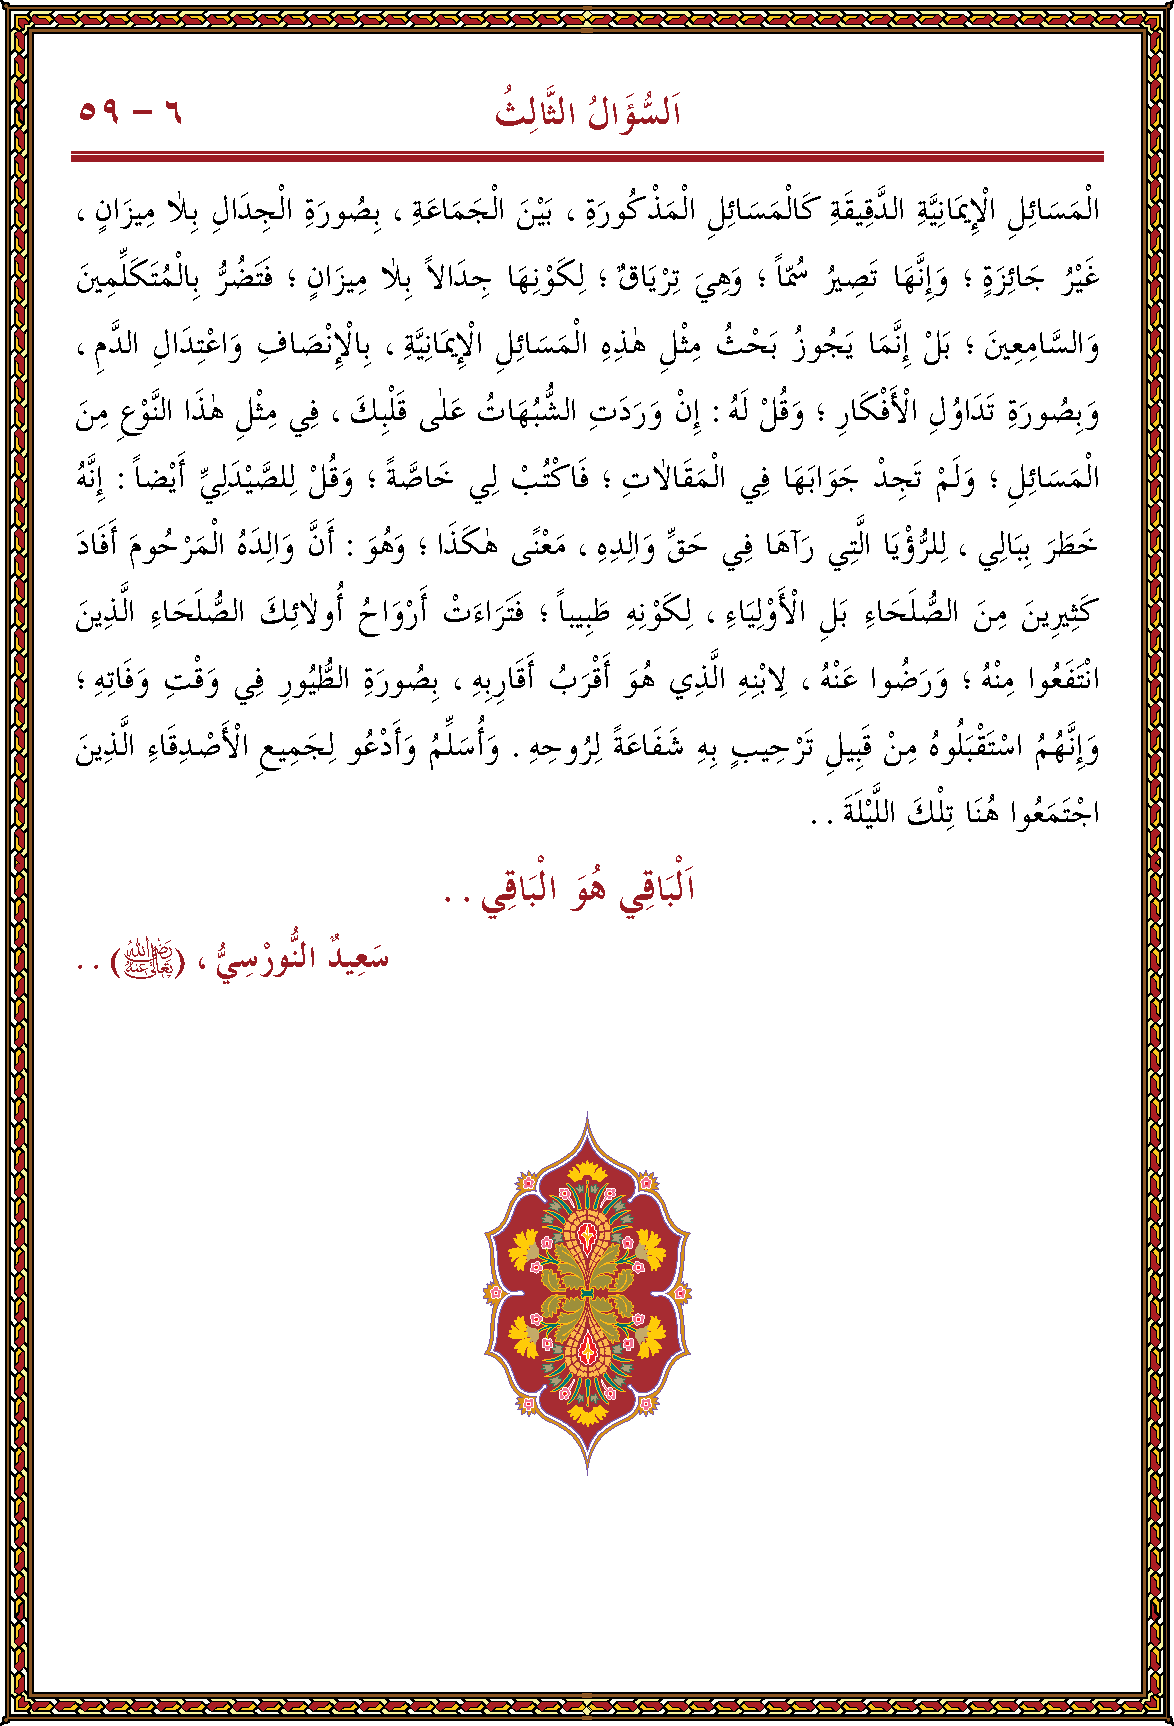 اَلسُّؤَالُ الثَّالِثُ ٦ – ٥٩
الْمَسَائِلِ الْإِيمَانِيَّةِ الدَّقِيقَةِ كَالْمَسَائِلِ الْمَذْكُورَةِ ، بَيْنَ الْجَمَاعَةِ ، بِصُورَةِ الْجِدَالِ بِلَا مِيزَانٍ ،
غَيْرُ جَائِزَةٍ ؛ وَإِنَّهَا تَصِيرُ سُمّاً ؛ وَهِيَ تِرْيَاقٌ ؛ لِكَوْنِهَا جِدَالاً بِلَا مِيزَانٍ ؛ فَتَضُرُّ بِالْمُتَكَلِّمِينَ
وَالسَّامِعِينَ ؛ بَلْ إِنَّمَا يَجُوزُ بَحْثُ مِثْلِ هٰذِهِ الْمَسَائِلِ الْإِيمَانِيَّةِ ، بِالْإِنْصَافِ وَاعْتِدَالِ الدَّمِ ،
وَبِصُورَةِ تَدَاوُلِ الْأَفْكَارِ ؛ وَقُلْ لَهُ : إِنْ وَرَدَتِ الشُّبُهَاتُ عَلٰى قَلْبِكَ ، فِي مِثْلِ هٰذَا النَّوْعِ مِنَ
الْمَسَائِلِ ؛ وَلَمْ تَجِدْ جَوَابَهَا فِي الْمَقَالَاتِ ؛ فَاكْتُبْ لِي خَاصَّةً ؛ وَقُلْ لِلصَّيْدَلِيِّ أَيْضاً : إِنَّهُ
خَطَرَ بِبَالِي ، لِلرُّؤْيَا الَّتِي رَآهَا فِي حَقِّ وَالِدِهِ ، مَعْنًى هٰكَذَا ؛ وَهُوَ : أَنَّ وَالِدَهُ الْمَرْحُومَ أَفَادَ
كَثِيرِينَ مِنَ الصُّلَحَاءِ بَلِ الْأَوْلِيَاءِ ، لِكَوْنِهِ طَبِيباً ؛ فَتَرَاءَتْ أَرْوَاحُ أُولٰائِكَ الصُّلَحَاءِ الَّذِينَ
انْتَفَعُوا مِنْهُ ؛ وَرَضُوا عَنْهُ ، لِابْنِهِ الَّذِي هُوَ أَقْرَبُ أَقَارِبِهِ ، بِصُورَةِ الطُّيُورِ فِي وَقْتِ وَفَاتِهِ ؛
وَإِنَّهُمُ اسْتَقْبَلُوهُ مِنْ قَبِيلِ تَرْحِيبٍ بِهِ شَفَاعَةً لِرُوحِهِ . وَأُسَلِّمُ وَأَدْعُو لِجَمِيعِ الْأَصْدِقَاءِ الَّذِينَ
اجْتَمَعُوا هُنَا تِلْكَ اللَّيْلَةَ . .
اَلْبَاقِي هُوَ الْبَاقِي . .
سَعِيدٌ النُّورْسِيُّ ، (رَضِيَ اللهُ تَعَالٰى عَنْهُ) . .